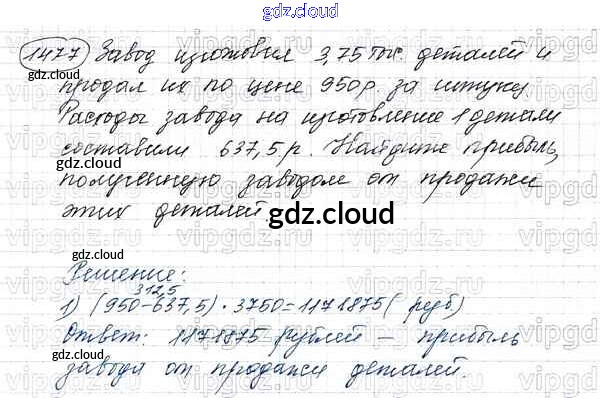 gdz.cloud
1477 Завод изготовил 3,75 тыс. деталей и
gdz.cloud
продал их по цене 950 р. за штуку.
Расходы завода на изготовление 1 детали
составили 637,5 р. Найдите прибыль,
gdz.cloud
полученную заводом от продажи
этих деталей.
gdz.cloud
Решение:
gdz.cloud
312,5
1) (950-637,5) · 3750=1171875 ( руб)
Ответ: 1171875 рублей – прибыль
gdz.cloud
завода от продажи деталей.